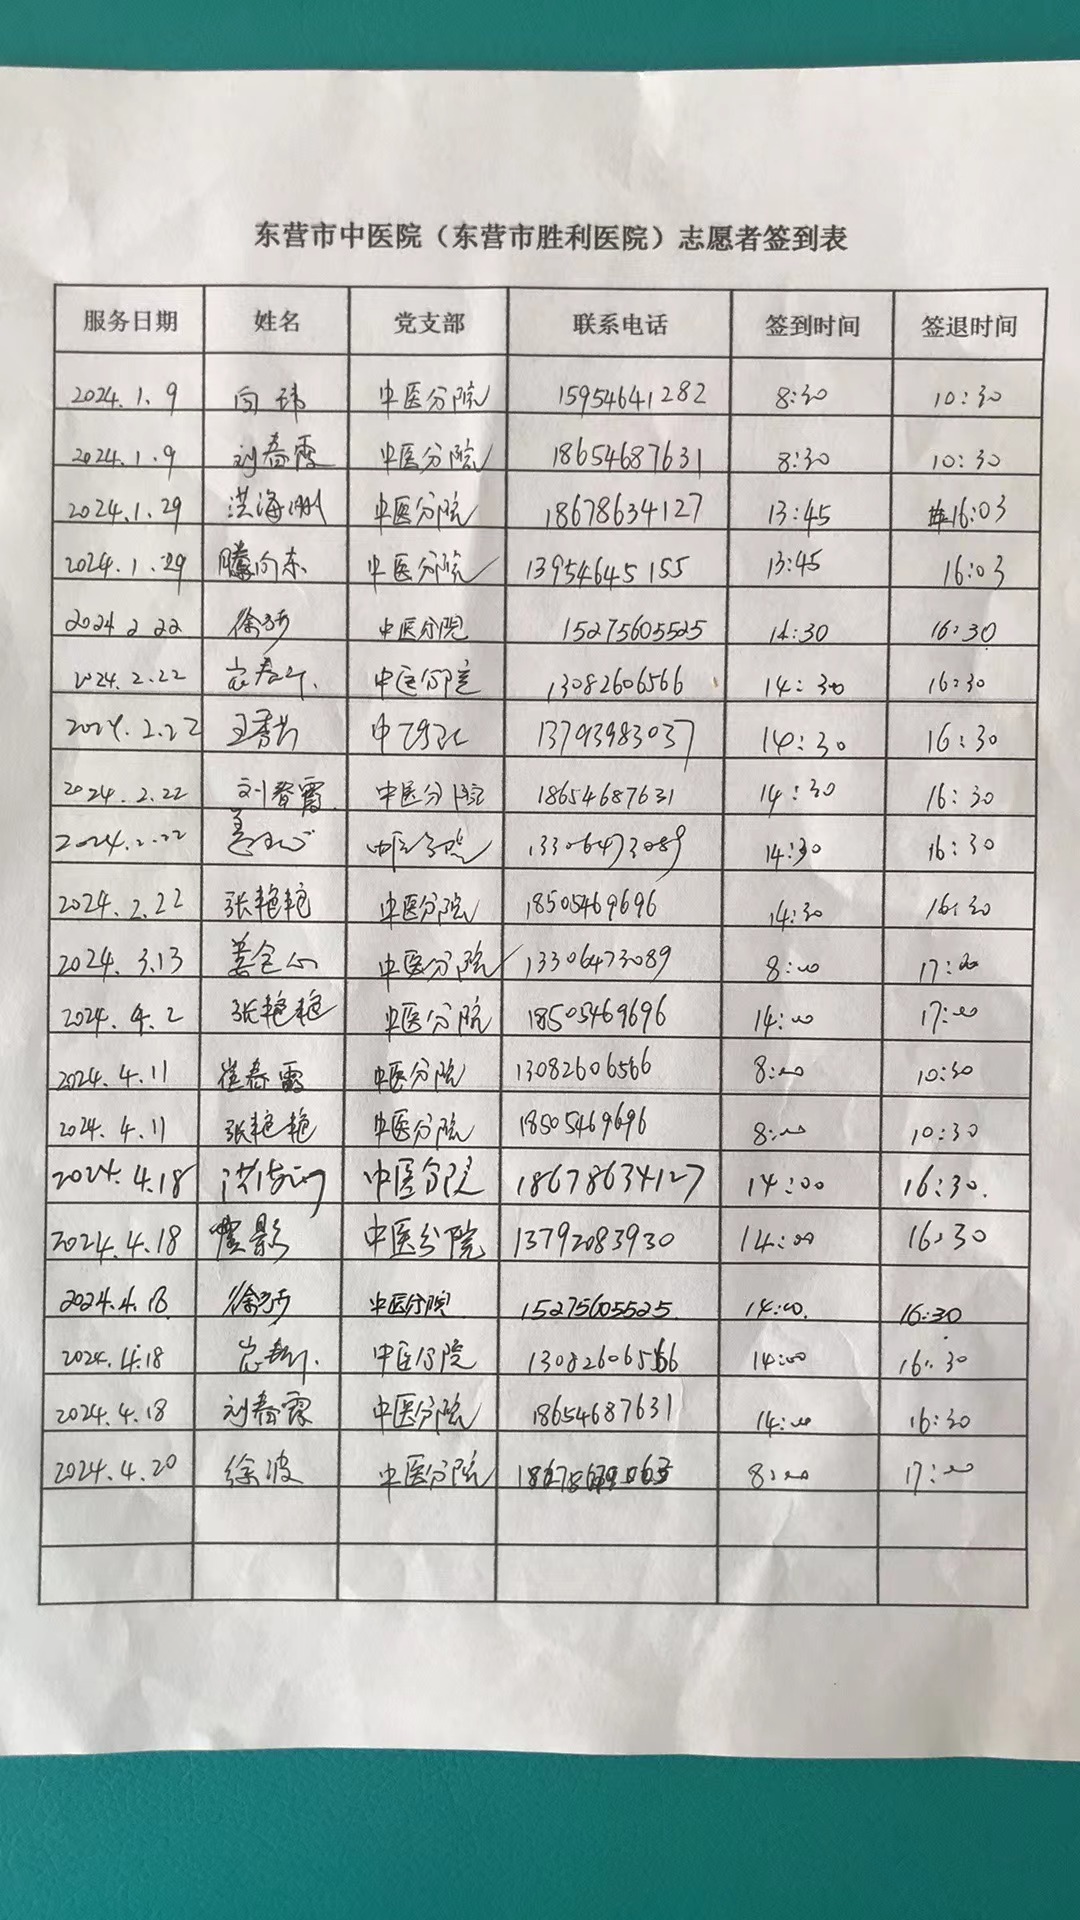 东营市中医院（东营市胜利医院）志愿者签到表
服务日期 姓名 党支部 联系电话 签到时间 签退时间
2024.1.9 向玮 中医分院 15954641282 8:30 10:30
2024.1.9 刘春霞 中医分院 18654687631 8:30 10:30
2024.1.29 洪海洲 中医分院 18678634127 13:45 16:03
2024.1.29 滕向东 中医分院 13954645155 13:45 16:03
2024 2.22 徐 中医分院 15275605525 14:30 16:30
2024.2.22 中医分院 13082606566 14:30 16:30
2024.2.22 王秀 中 13793983037 14:30 16:30
2024.2.22 刘春霞 中医分院 18654687631 14:30 16:30
2024.2.22 中医分院 13306473089 14:30 16:30
2024.2.22 张艳艳 中医分院 18505469696 14:30 16:30
2024.3.13 姜 中医分院 13306473089 8:00 17:00
2024.4.2 张艳艳 中医分院 18505469696 14:00 17:00
2024.4.11 崔春霞 中医分院 13082606566 8:00 10:30
2024.4.11 张艳艳 中医分院 18505469696 8:00 10:30
2024.4.18 中医分院 18678634127 14:00 16:30.
2024.4.18 影 中医分院 13792083930 14:00 16:30
2024.4.18 徐 中医分院 15275605525. 14:00. 16:30
2024.4.18 中医分院 13082606566 14:00 16:30
2024.4.18 刘春霞 中医分院 18654687631 14:00 16:30
2024.4.20 徐波 中医分院 8:00 17:00